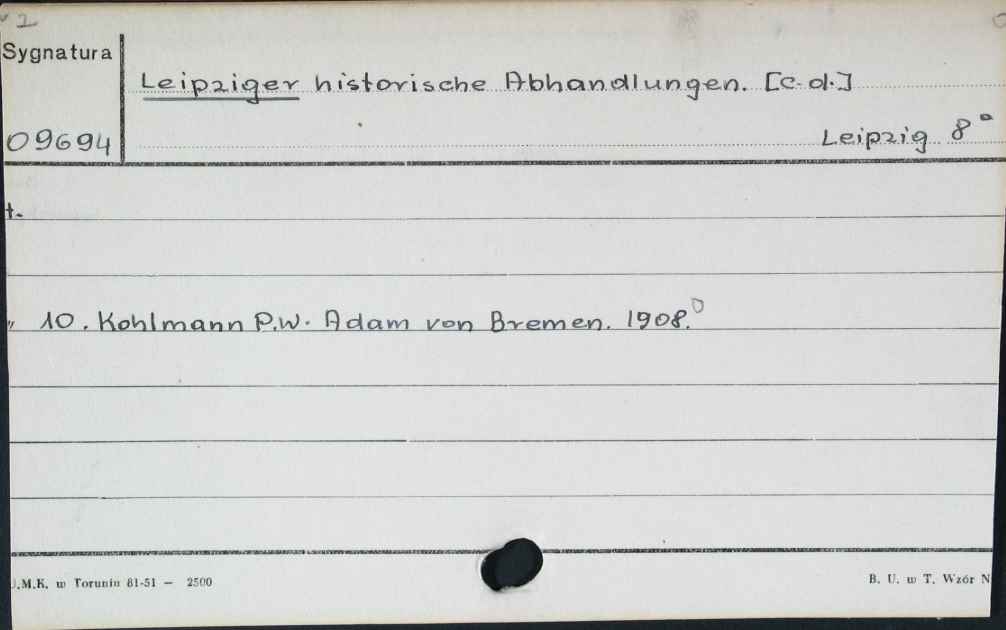 2
Sygnatura
Leipziger historische Abhandlungen. [c.d.]
09694
Leipzig 8°
t.
" 10. Kohlmann P.W. Adam von Bremen. 1908.
U.M.K. w Toruniu 81-51 — 2500
B. U. w T. Wzór N